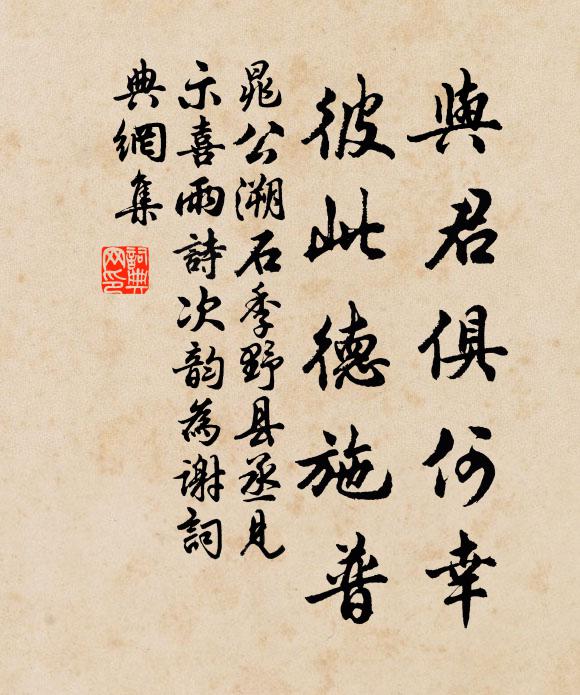 與君俱何幸
彼此德施普
晁公溯石季野县丞見
示喜雨詩次韵為謝詞
典網集
詞典網印